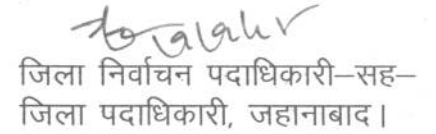 जिला निर्वाचन पदाधिकारी–सह–
जिला पदाधिकारी, जहानाबाद।